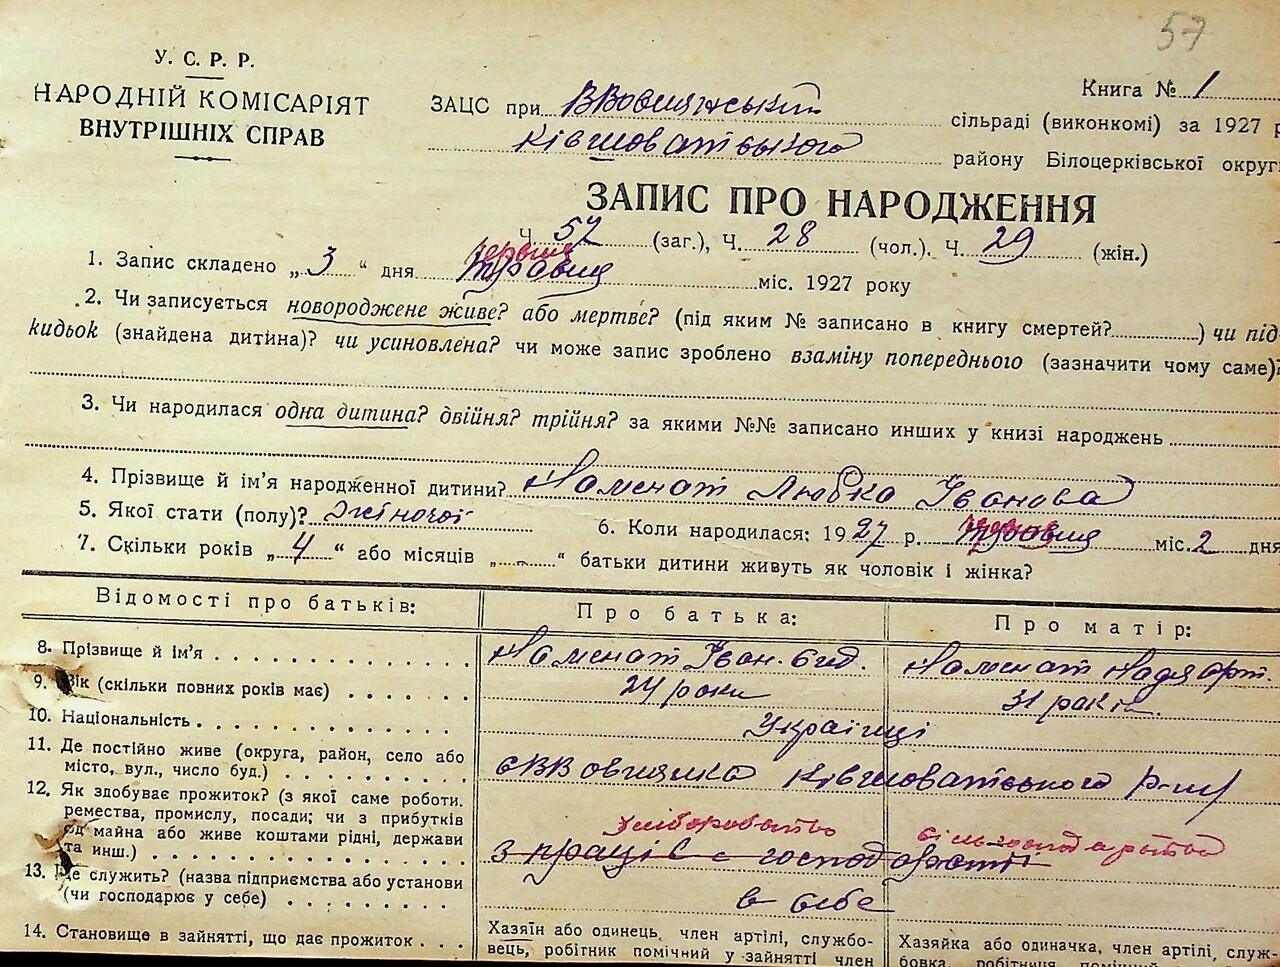 57
У. С. Р. Р.
НАРОДНІЙ КОМІСАРІЯТ
ВНУТРІШНІХ СПРАВ
Книга № 1
ЗАЦС при ВВовнянський
сільраді (виконкомі) за 1927 р
Ківшоватського
району Білоцерківської округи
ЗАПИС ПРО НАРОДЖЕННЯ
Ч 57 (заг.), Ч. 28 (чол.). Ч. 29 (жін.)
червня
1. Запис складено „ 3 “ дня травня міс. 1927 року
2. Чи записується новороджене живе? або мертве? (під яким № записано в книгу смертей? ) чи під-
кидьок (знайдена дитина)? чи усиновлена? чи може запис зроблено взаміну попереднього (зазначити чому саме)?
3. Чи народилася одна дитина? двійня? трійня? за якими №№ записано инших у книзі народжень
4. Прізвище й ім'я народженної дитини? Любка Іванова
5. Якої стати (полу)? жіночої
6. Коли народилася: 1927 р. травня міс. 2 дня
7. Скільки років „ 4 “ або місяців „ – “ батьки дитини живуть як чоловік і жінка?
Відомості про батьків:
Про батька:
Про матір:
8. Прізвище й ім'я
Іван
Надя
9. Вік (скільки повних років має)
24 роки
31 рок
10. Національність
Українці
11. Де постійно живе (округа, район, село або
місто, вул., число буд.)
с ВВовнянка Ківшоватського р-ну
12. Як здобуває прожиток? (з якої саме роботи.
ремества, промислу, посади; чи з прибутків
од майна або живе коштами рідні, держави
та инш.)
хліборобство
сільгосподарство
з праці в с господарстві
13. Де служить? (назва підприємства або установи
(чи господарює у себе)
в себе
14. Становище в зайнятті, що дає прожиток
Хазяїн або одинець, член артілі, службо-
вець, робітник помічний у зайнятті член
Хазяйка або одиначка, член артілі, служ-
бовка, робітниця